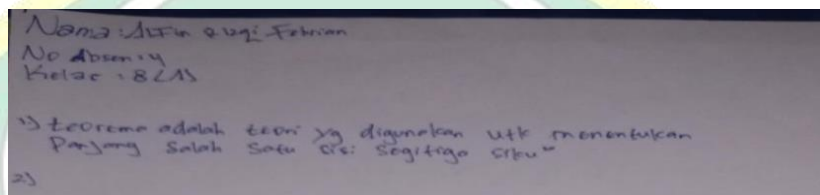 Nama : Alfin Rizqi Febrian
No Absen : 4
Kelas : 8
1) teorema adalah teori yg digunakan utk menentukan
Panjang Salah Satu sisi Segitiga siku"
2)